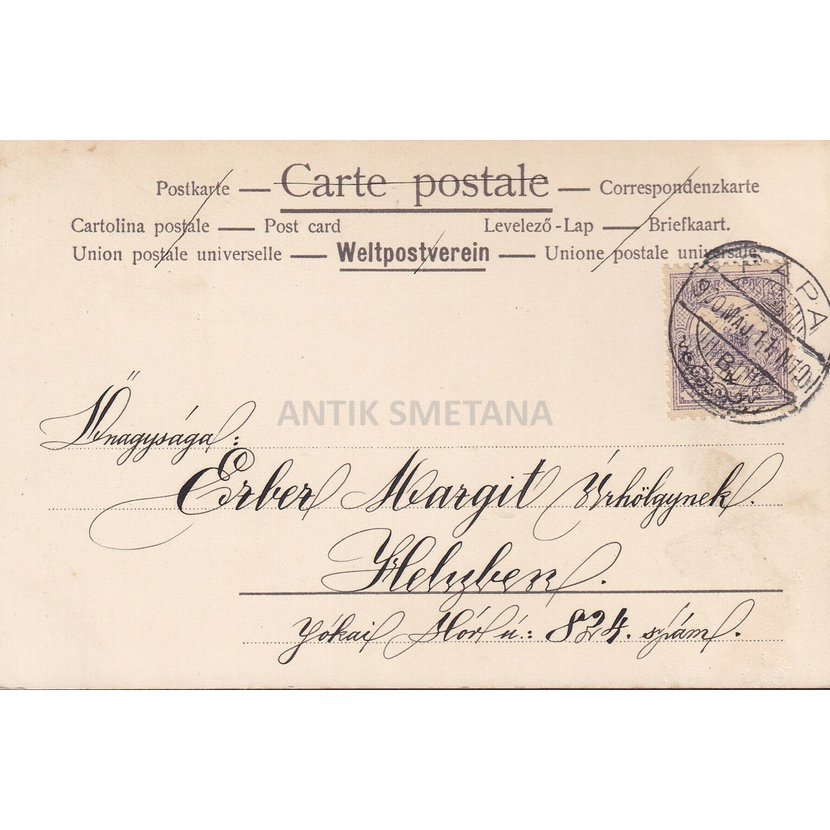 Postkarte — Carte postale — Correspondenzkarte
Cartolina postale — Post card Levelező-Lap — Briefkaart.
Union postale universelle — Weltpostverein — Unione postale universale
PAPA
ANTIK SMETANA
Őnagysága:
Erber Margit Úrhölgynek.
Helyben.
Jókai Mór ú.: 824. szám.